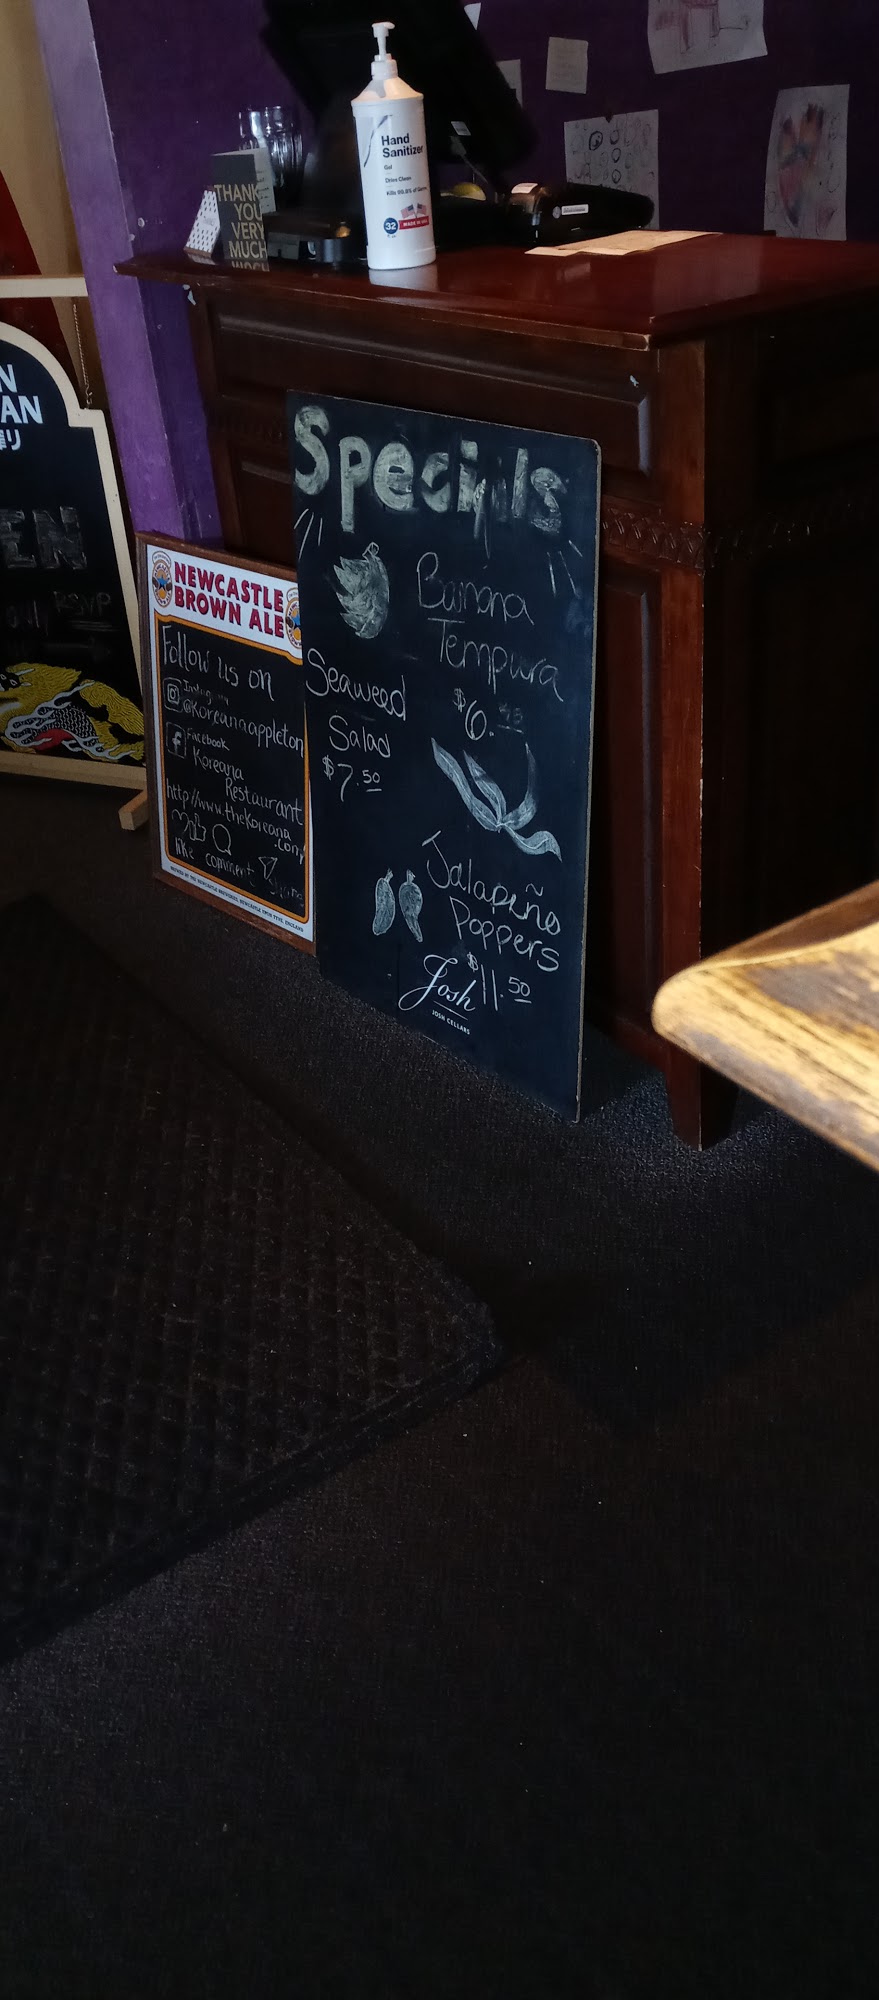 Hand
Sanitizer
Gel
Dries Clean
Kills 99.9% of Germs
32
MADE IN USA
THANK
YOU
VERY
MUCH
N
AN
EN
RSVP
NEWCASTLE
BROWN ALE
Follow us on
Instagram
@Koreanaappleton
Facebook
Koreana
Restaurant
http://www.thekoreana
.com/
like comment
Specials
Banana
Tempura
$6.
Seaweed
Salad
$7.50
Jalapeño
Poppers
$11.50
Josh
JOSH CELLARS